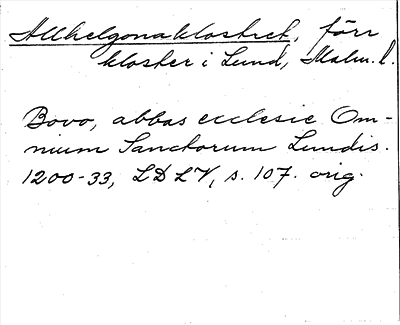 Allhelgonaklostret, förr
kloster i Lund, Malm. l.
Bovo, abbas ecclesie Om-
nium Sanctorum Lundis.
1200-33, LDLV, s. 107. orig.